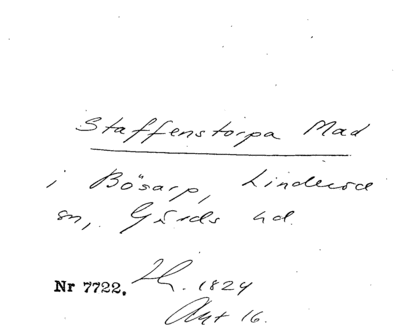 Staffenstorpa Mad
i Bösarp, Linderöd
sn, Gärds hd.
Nr 7722. 1824
Akt 16.